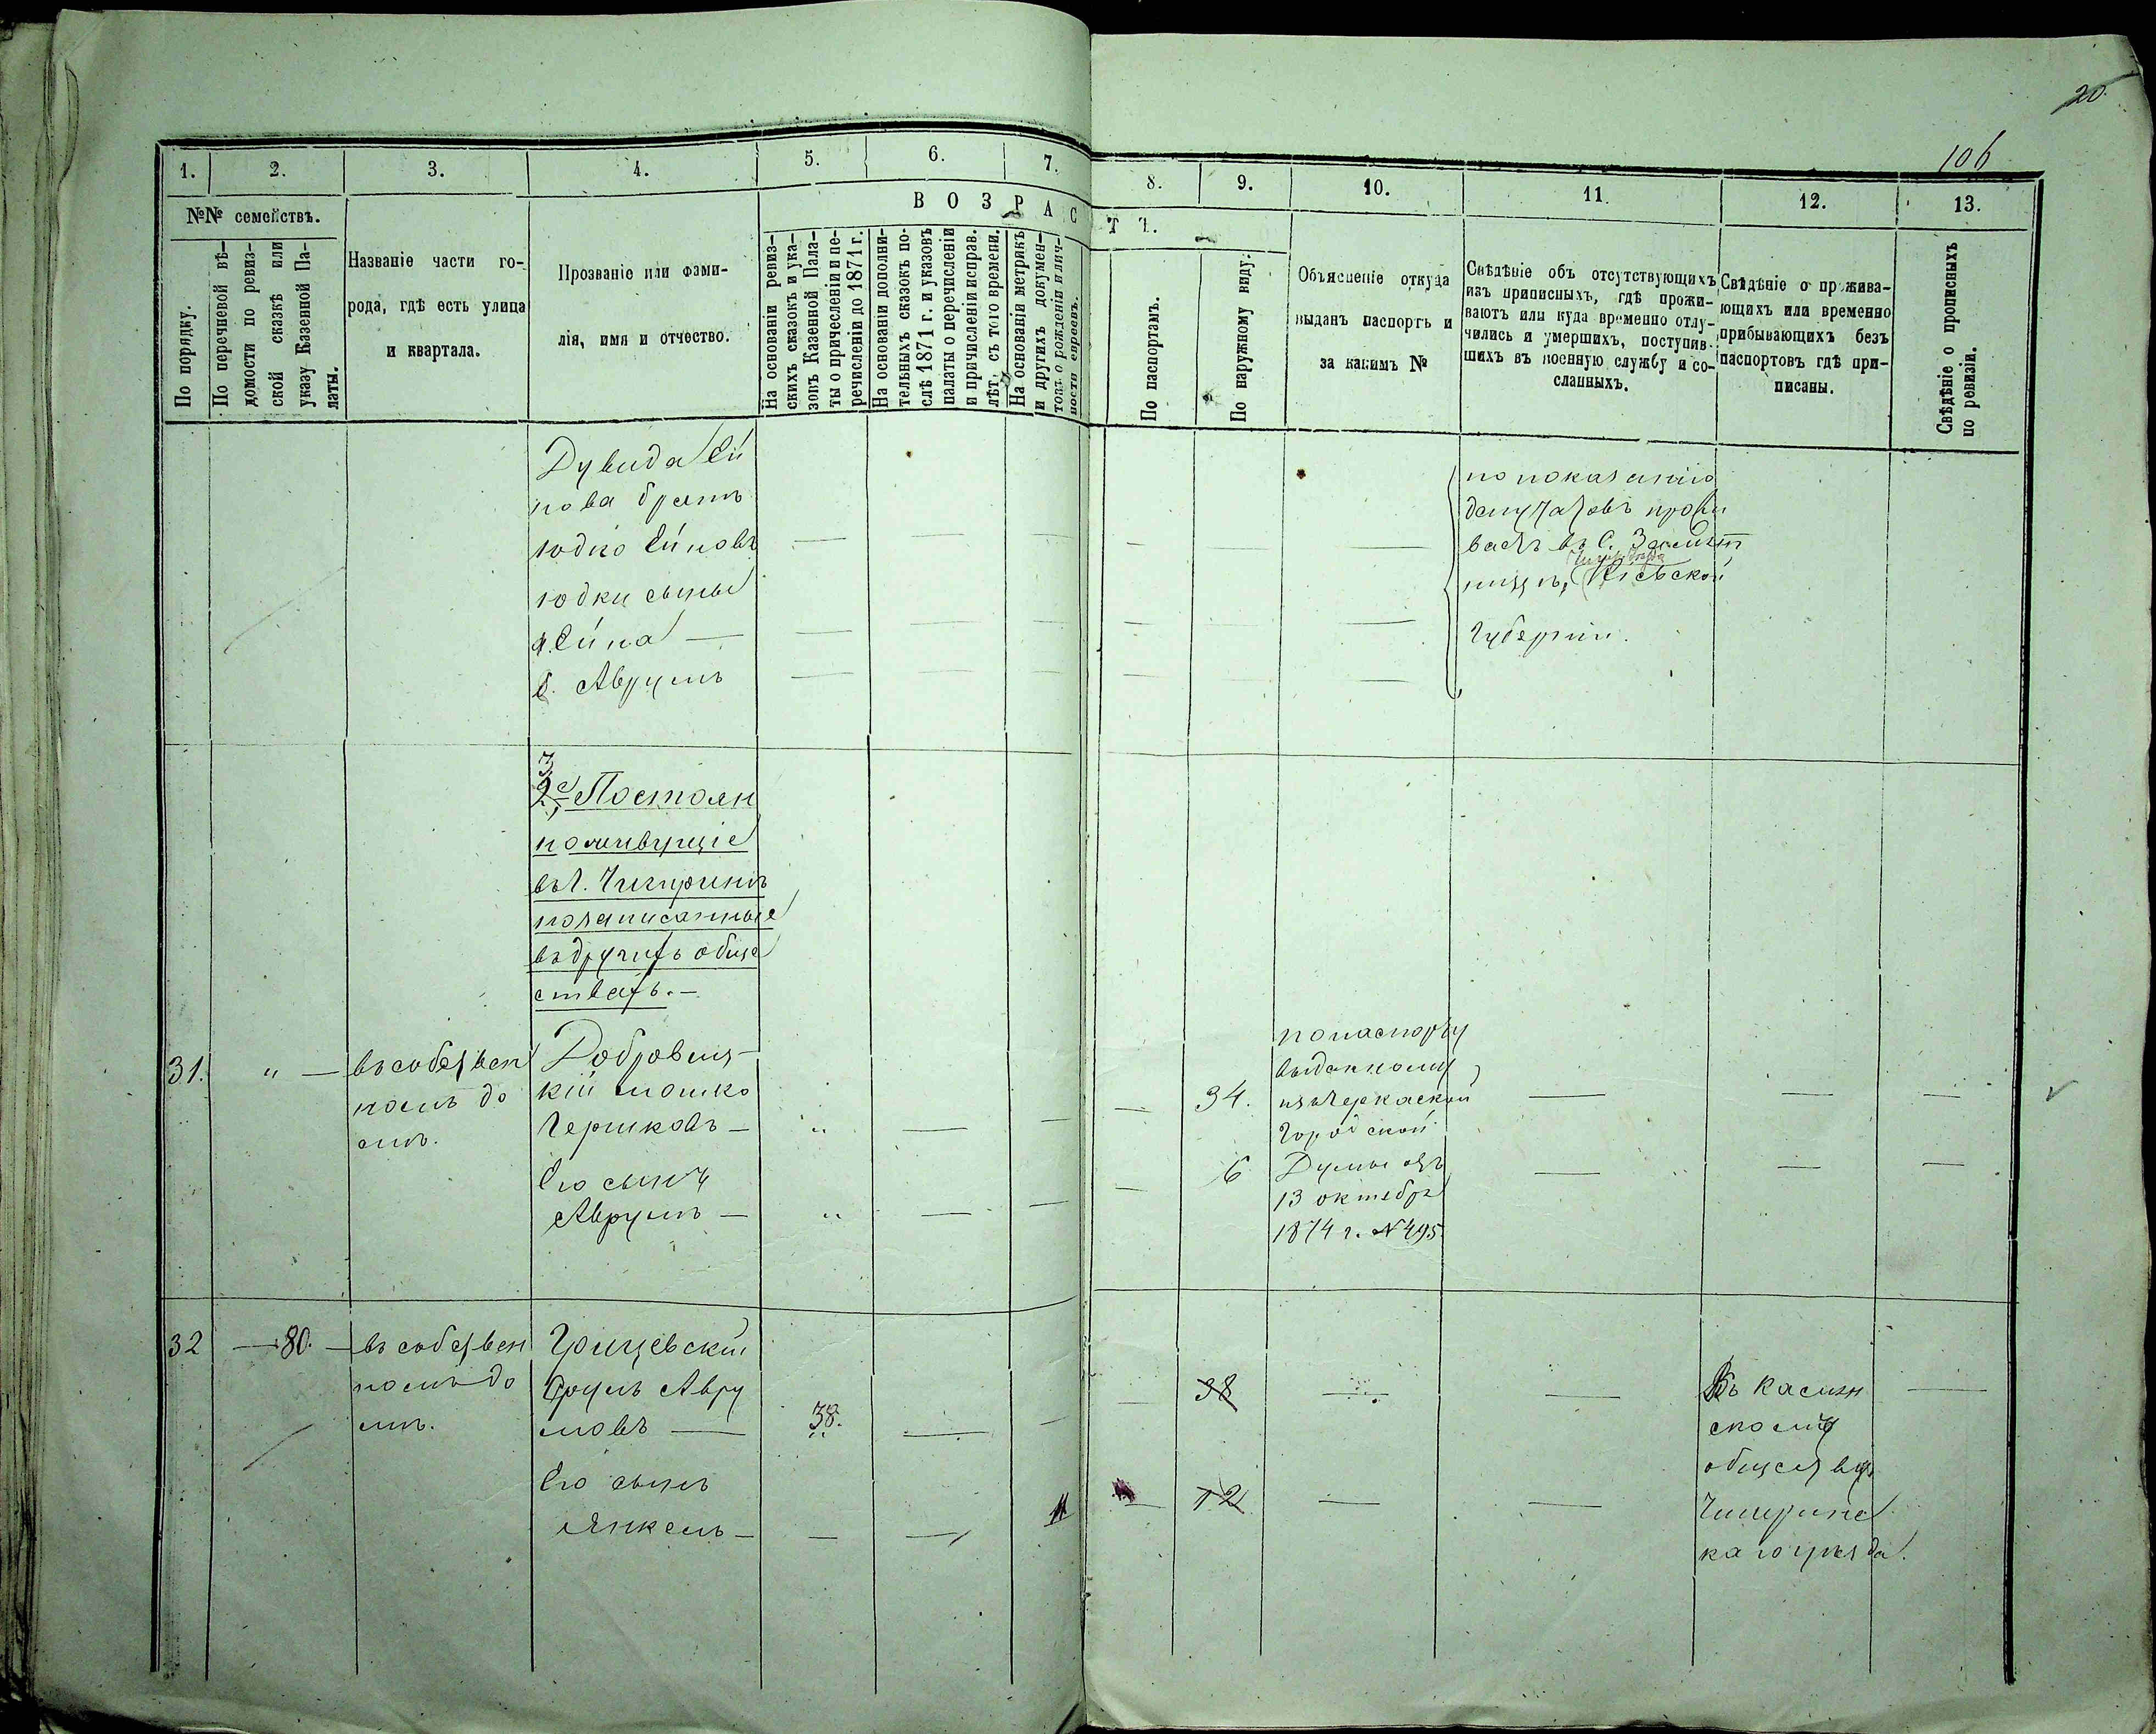 20
106
1.
2.
3.
4.
5.
6.
7.
8.
9.
10.
11.
12.
13.
№№ семействъ.
По порядку.
По перечневой вѣ-
домости по ревиз-
ской сказкѣ или
указу Казенной Па-
латы.
Названіе части го-
рода, гдѣ есть улица
и квартала.
Прозваніе или фами-
лія, имя и отчество.
ВОЗРАС
ТЪ.
На основаніи ревиз-
скихъ сказокъ и ука-
зовъ Казенной Пала-
ты о причесленіи и пе-
речисленіи до 1871 г.
На основаніи дополни-
тельныхъ сказокъ по-
слѣ 1871 г. и указовъ
палаты о перечисленіи
и причисленіи исправ.
лѣт. съ того времени.
На основаніи метрикъ
и другихъ докумен-
товъ о рожденіи и лич-
ности евреевъ.
По паспортамъ.
По наружному виду.
Объясненіе откуда
выданъ паспортъ и
за какимъ №
Свѣдѣніе объ отсутствующихъ
изъ приписныхъ, гдѣ прожи-
ваютъ или куда временно отлу-
чились и умершихъ, поступив-
шихъ въ военную службу и со-
сланныхъ.
Свѣдѣніе о прожива-
ющихъ или временно
прибывающихъ безъ
паспортовъ гдѣ при-
писаны.
Свѣдѣніе о прописныхъ
по ревизіи.
Дувида Сӣ
нова братъ
Юдко
Юдки сыны
а.
б. Аврумъ
по показанію
депутатовъ прожи
ваетъ въ С.
Кіевской
Губерніи.
3
2е Постоян
но живущіе
въ г. Чигиринѣ
но записанные
въ другихъ обще
ствахъ. —
31. " — въ собствен
номъ до
мѣ.
Добровиц-
кій Мошко
Гершковъ —
Его сынъ
Аврумъ —
34.
6
по паспорту
выданному
изъ Черкаской
Городской
Думы отъ
13 октебря
1874 г. № 495
32 — 80. — въ собствен
номъ до
мѣ.
Грищевскій
Срулъ Авру
мовъ —
38.
38
Его сынъ
Янкель —
11
12
Въ
скому
общества
Чигиринс
каго уѣзда.